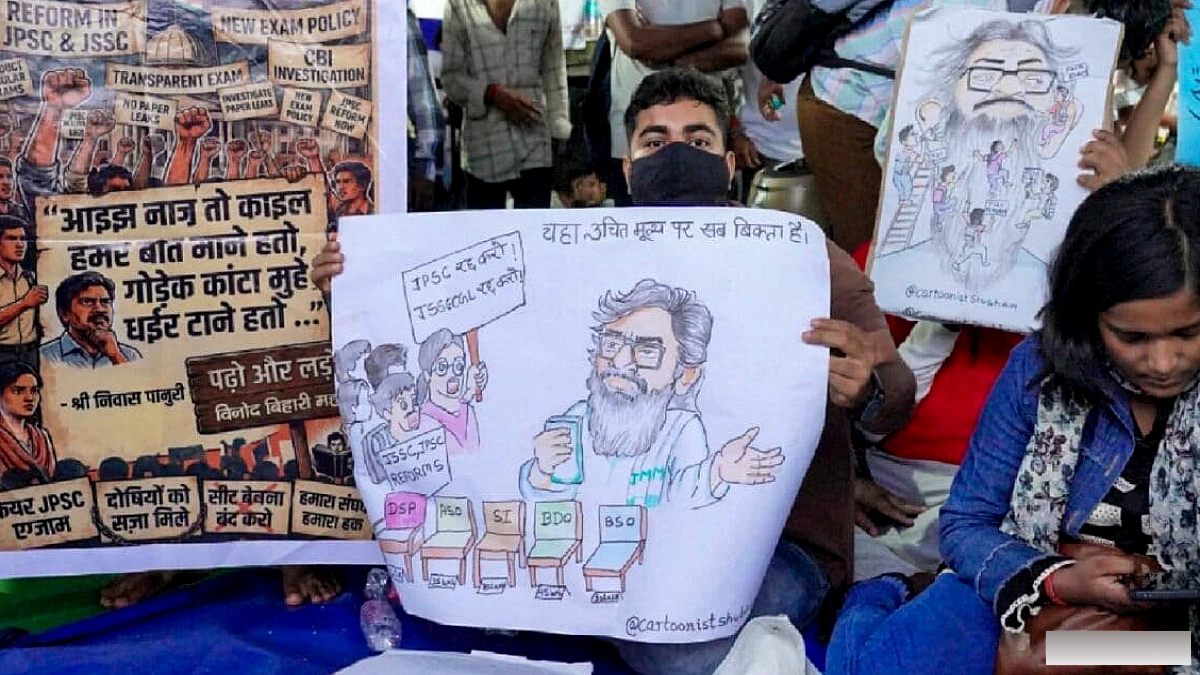 REFORM IN
JPSC & JSSC
NEW EXAM POLICY
TRANSPARENT EXAM
CBI
INVESTIGATION
NO PAPER
LEAKS
INVESTIGATE
PAPER LEAKS
NEW
EXAM
POLICY
JPSC
REFORM
NOW
“आइझ नाज़ तो काइल
हमर बात माने हतो,
गोड़ेक कांटा मुहे
धईर टाने हतो ...”
- श्री निवास पानुरी
पढ़ो और लड़ो
विनोद बिहारी
JPSC
एग्जाम
दोषियों को
सज़ा मिले
सीट बेचना
बंद करो
हमारा
हमारा हक
यहा उचित मूल्य पर सब बिकता है।
JPSC रद्द करो!
JSSCCGL रद्द करो!
JSSC, JPSC
REFORMS
JMM
DSP
ASO
SI
BDO
BSO
@cartoonistshubham
@cartoonistshubham